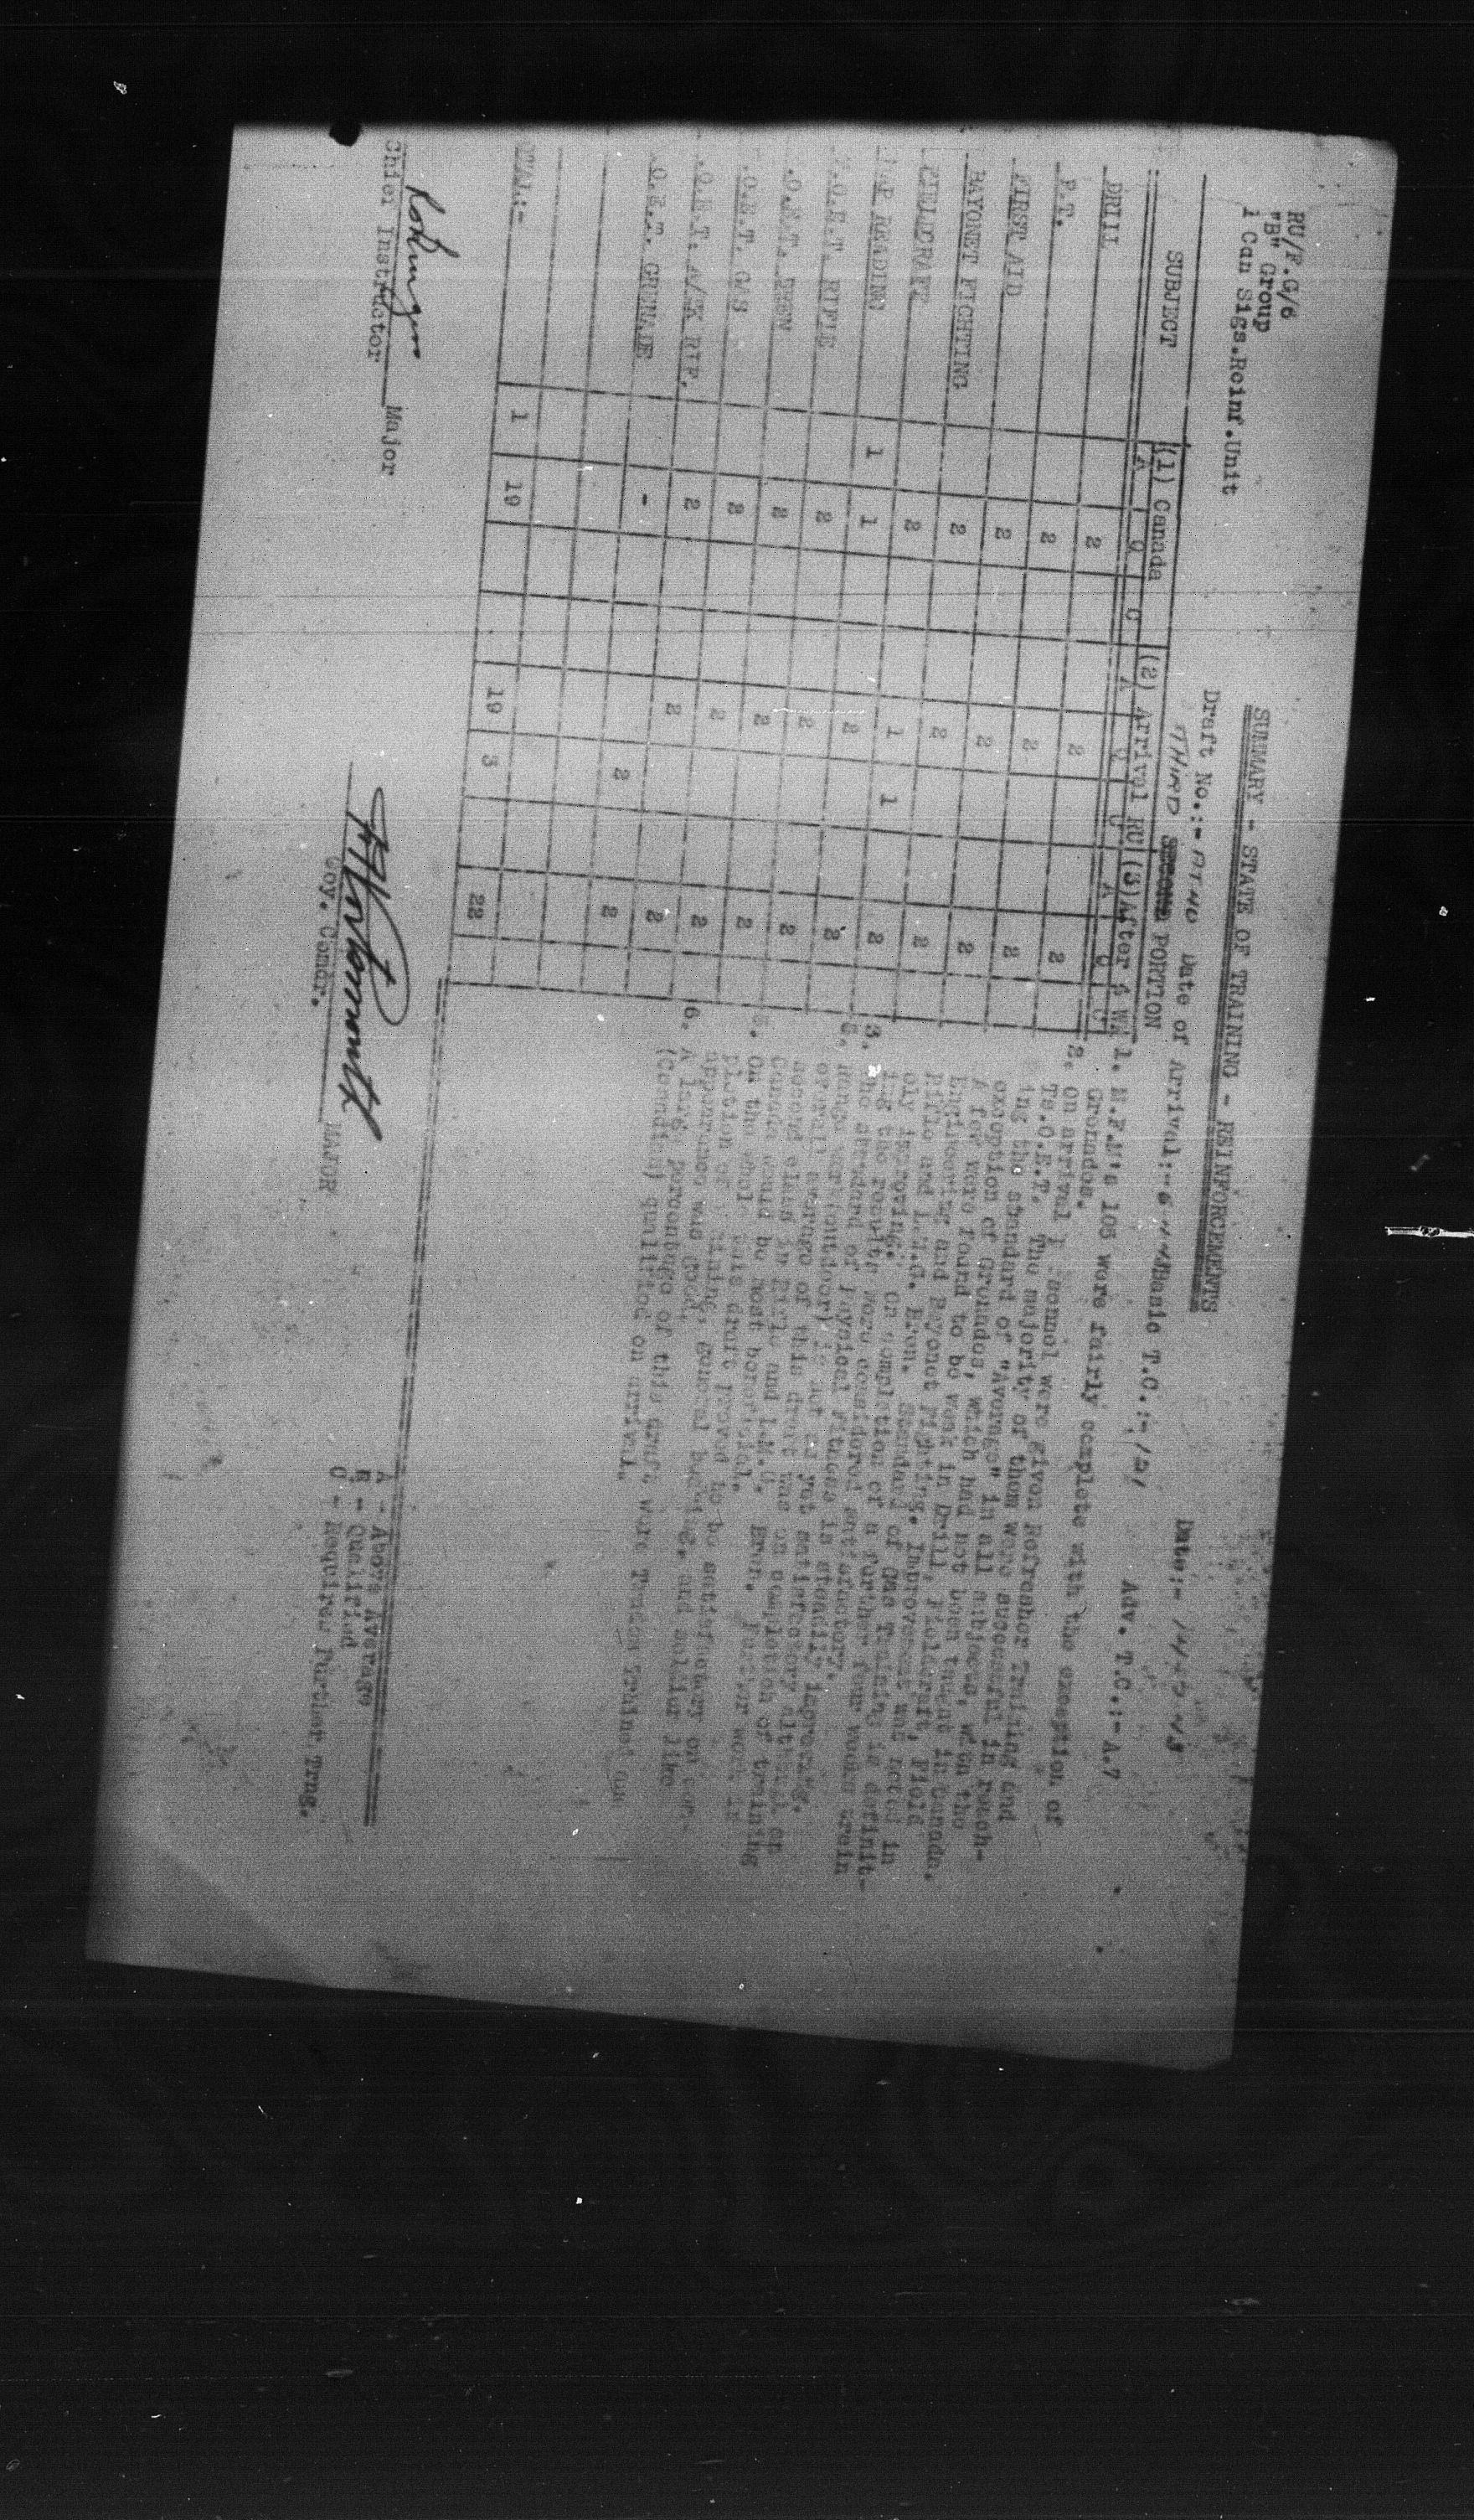 RU/F.G/6
"B" Group
1 Can Sigs.Reinf.Unit
SUMMARY - STATE OF TRAINING - REINFORCEMENTS
Date:-
Draft No.:- Date of Arrival:- Basic T.C.:- Adv. T.C.:- A.7
THIRD PORTION
SUBJECT (1) Canada (2) Arrival RU (3) After 4 Wk
A Q C A Q C A Q C
DRILL 2 2 2
P.T. 2 2 2
FIRST AID 2 2 2
BAYONET FIGHTING 2 2 2
FIELDCRAFT 2 2 2
MAP READING 1 1 1 1 2
.O.E.T. RIFLE 2 2 2
.O.E.T. BREN 2 2 2
.O.E.T. GAS 2 2 2
.O.E.T. A/K RIF. 2 2 2
.O.E.T. GRENADE - 2 2
TOTAL:- 1 19 19 3 22
1. M.F.M's 105 were fairly complete with the exception of
Grenades.
2. On arrival personnel were given Refresher Training and
Ts.O.E.T. The majority of them were successful in reach-
ing the standard of "Average" in all subjects, with the
exception of Grenades, which had not been taught in Canada.
A few were found to be weak in Drill, Fieldcraft, Field
Engineering and Bayonet Fighting. Improvement was noted in
Rifle and L.M.G. Bren. Standard of Gas Training is definit-
ely improving. On completion of a further four weeks train
ing the results were considered satisfactory.
3. The standard of Physical Fitness is steadily improving.
Range work (outdoor) is not as yet satisfactory although on
overall average of this draft was on completion of training
second class in Rifle and L.M.G. Bren. Further work in
Canada would be most beneficial.
On the whole this draft proved to be satisfactory on com-
pletion of training, general bearing, and soldier like
appearance was good.
6. A large percentage of this draft were Trades Trained and
(Canadian) qualified on arrival.
A - Above Average
Q - Qualified
C - Requires Further Trng.
Major
Chief Instructor
MAJOR
Coy. Comdr.